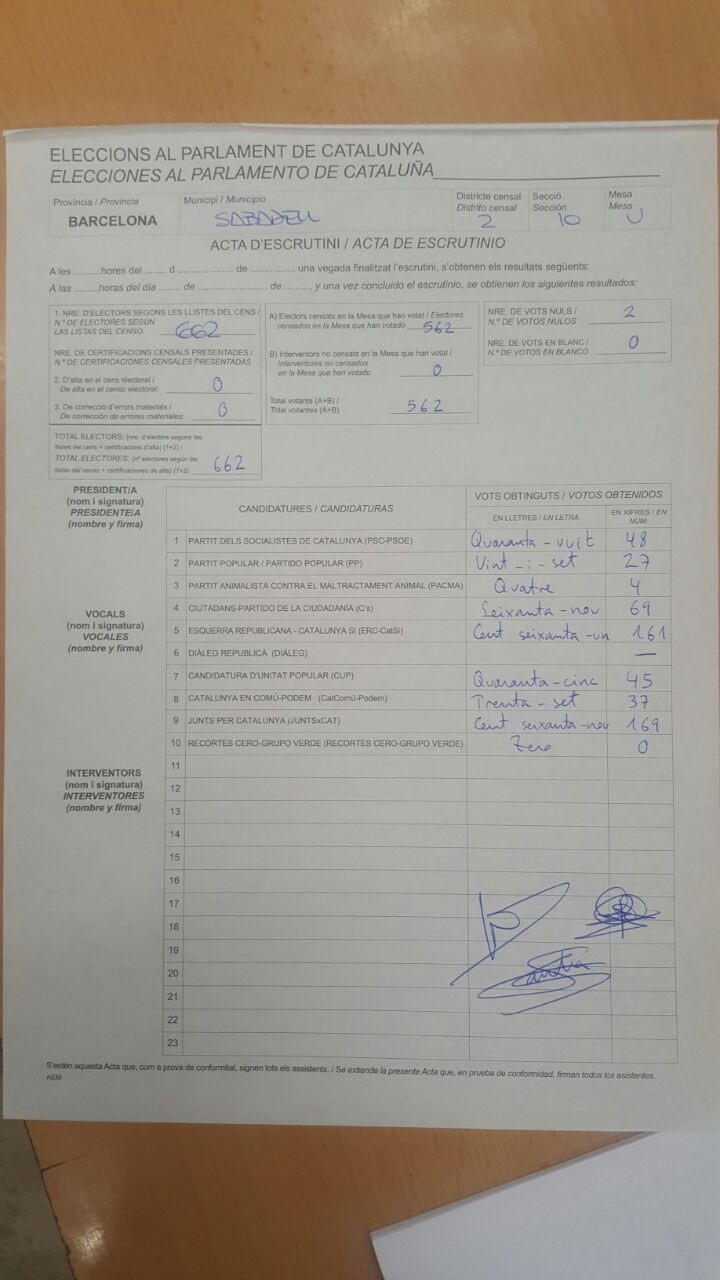 ELECCIONS AL PARLAMENT DE CATALUNYA
ELECCIONES AL PARLAMENTO DE CATALUÑA
Província / Provincia
BARCELONA
Municipi / Municipio
SABADELL
Districte censal
Distrito censal
2
Secció
Sección
10
Mesa
Mesa
U
ACTA D'ESCRUTINI / ACTA DE ESCRUTINIO
A les ..........hores del ........ d ................... de .............., una vegada finalitzat l'escrutini, s'obtenen els resultats següents:
A las ..........horas del día ....... de ....................... de ........, y una vez concluido el escrutinio, se obtienen los siguientes resultados:
1. NRE. D'ELECTORS SEGONS LES LLISTES DEL CENS /
N.º DE ELECTORES SEGÚN
LAS LISTAS DEL CENSO 662
NRE. DE CERTIFICACIONS CENSALS PRESENTADES /
N.º DE CERTIFICACIONES CENSALES PRESENTADAS
2. D'alta en el cens electoral /
De alta en el censo electoral: 0
3. De correcció d'errors materials /
De corrección de errores materiales: 0
TOTAL ELECTORS: (nre. d'electors segons les
llistes del cens + certificacions d'alta) (1+2) /
TOTAL ELECTORES: (nº electores según las
listas del censo + certificaciones de alta) (1+2) 662
A) Electors censats en la Mesa que han votat / Electores
censados en la Mesa que han votado 562
B) Interventors no censats en la Mesa que han votat /
Interventores no censados
en la Mesa que han votado 0
Total votants (A+B) /
Total votantes (A+B) 562
NRE. DE VOTS NULS /
N.º DE VOTOS NULOS 2
NRE. DE VOTS EN BLANC /
N.º DE VOTOS EN BLANCO 0
PRESIDENT/A
(nom i signatura)
PRESIDENTE/A
(nombre y firma)
VOCALS
(nom i signatura)
VOCALES
(nombre y firma)
INTERVENTORS
(nom i signatura)
INTERVENTORES
(nombre y firma)
CANDIDATURES / CANDIDATURAS
VOTS OBTINGUTS / VOTOS OBTENIDOS
EN LLETRES / EN LETRA
EN XIFRES / EN NUM.
1 PARTIT DELS SOCIALISTES DE CATALUNYA (PSC-PSOE) Quaranta-vuit 48
2 PARTIT POPULAR / PARTIDO POPULAR (PP) Vint-i-set 27
3 PARTIT ANIMALISTA CONTRA EL MALTRACTAMENT ANIMAL (PACMA) Quatre 4
4 CIUTADANS-PARTIDO DE LA CIUDADANÍA (C's) Seixanta-nou 69
5 ESQUERRA REPUBLICANA - CATALUNYA SÍ (ERC-CatSí) Cent seixanta-un 161
6 DIÀLEG REPUBLICÀ (DIÀLEG) —
7 CANDIDATURA D'UNITAT POPULAR (CUP) Quaranta-cinc 45
8 CATALUNYA EN COMÚ-PODEM (CatComú-Podem) Trenta-set 37
9 JUNTS PER CATALUNYA (JUNTSxCAT) Cent seixanta-nou 169
10 RECORTES CERO-GRUPO VERDE (RECORTES CERO-GRUPO VERDE) Zero 0
11
12
13
14
15
16
17
18
19
20
21
22
23
S'estén aquesta Acta que, com a prova de conformitat, signen tots els assistents. / Se extiende la presente Acta que, en prueba de conformidad, firman todos los asistentes.
AEM